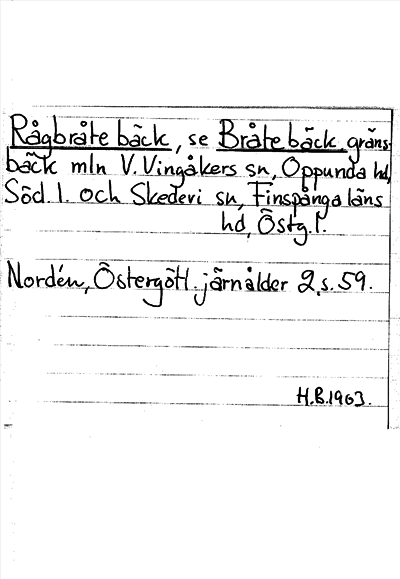 Rågbråte bäck, se Bråte bäck gräns-
bäck mln V. Vingåkers sn, Oppunda hd,
Söd. l. och Skedevi sn, Finspånga läns
hd, Östg. l.
Nordén, Östergötl. järnålder 2, s. 59.
H.B. 1963.